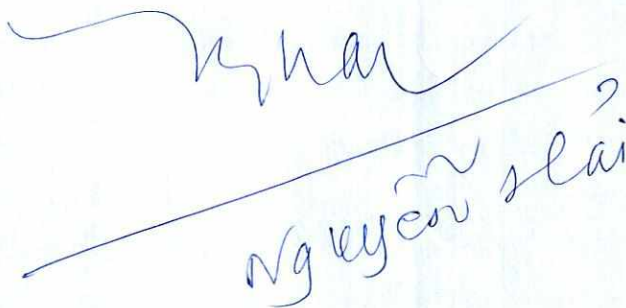 Nguyễn Hải